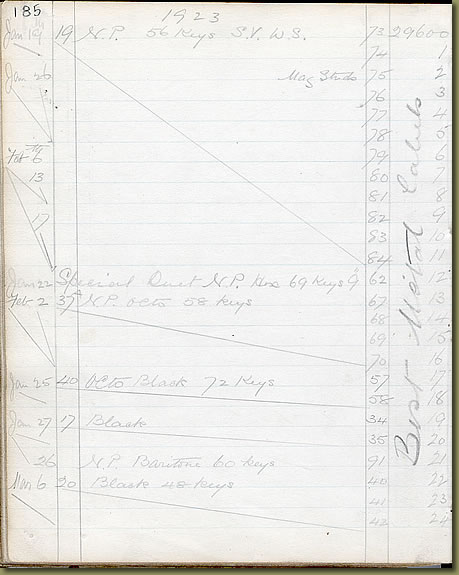 185
1923
Jan 19 19 N.P. 56 Keys S.V. W.S. 73 29600
74 1
Jan 26 75 2
76 3
77 4
78 5
Feb 6 79 6
13 80 7
81 8
17 82 9
83 10
84 11
Jan 22 Special Duet N.P. Hex 69 Keys 62 12
Feb 2 37A N.P. Octo 58 Keys 67 13
68 14
69 15
70 16
Jan 25 40 Octo Black 72 Keys 57 17
58 18
Jan 27 17 Black 34 19
35 20
26 N.P. Baritone 60 Keys 91 21
Mar 6 20 Black 48 Keys 40 22
41 23
42 24
Best Metal Labels